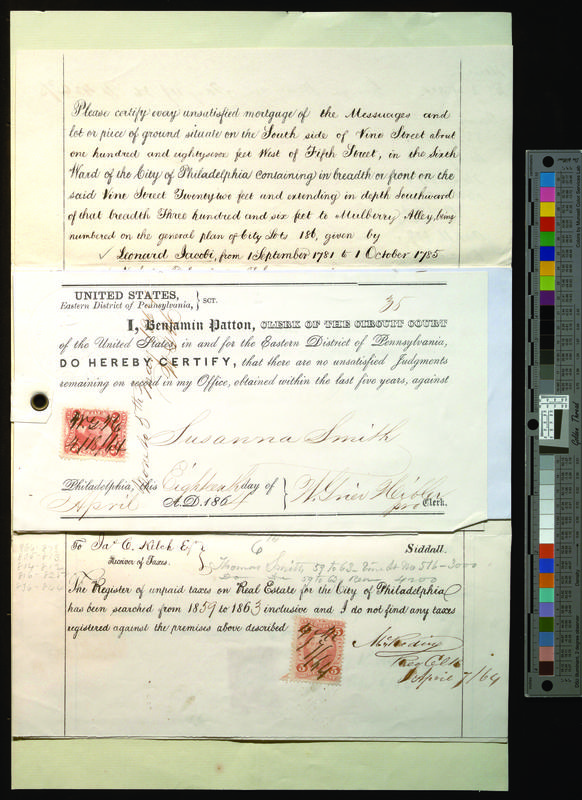 Please certify every unsatisfied mortgage of the Messuages and
lot or piece of ground situate on the South side of Vine Street about
one hundred and eightyseven feet West of Fifth Street, in the Sixth
Ward of the City of Philadelphia Containing in breadth or front on the
said Vine Street Twentytwo feet and extending in depth Southward
of that breadth Three hundred and six feet to Mulberry Alley, being
numbered on the general plan of City Lots 186, given by
✓ Leonard Jacobi, from 1 September 1781 to 1 October 1785
UNITED STATES,
Eastern District of Pennsylvania, } SCT.
35
I, Benjamin Patton, CLERK OF THE CIRCUIT COURT
of the United States, in and for the Eastern District of Pennsylvania,
DO HEREBY CERTIFY, that there are no unsatisfied Judgments
remaining on record in my Office, obtained within the last five years, against
Susanna Smith
Philadelphia, this Eighteenth day of
April A.D. 1864
pro Clerk.
To Jas. C. Kelch Esqr 6th Siddall.
Receiver of Taxes.
Thomas Smith, 59 to 63 Vine St No 516 - 3000
59 to 63 4200
The Register of unpaid taxes on Real Estate for the City of Philadelphia
has been searched from 1859 to 1863 inclusive and I do not find any taxes
registered against the premises above described
April 7/64